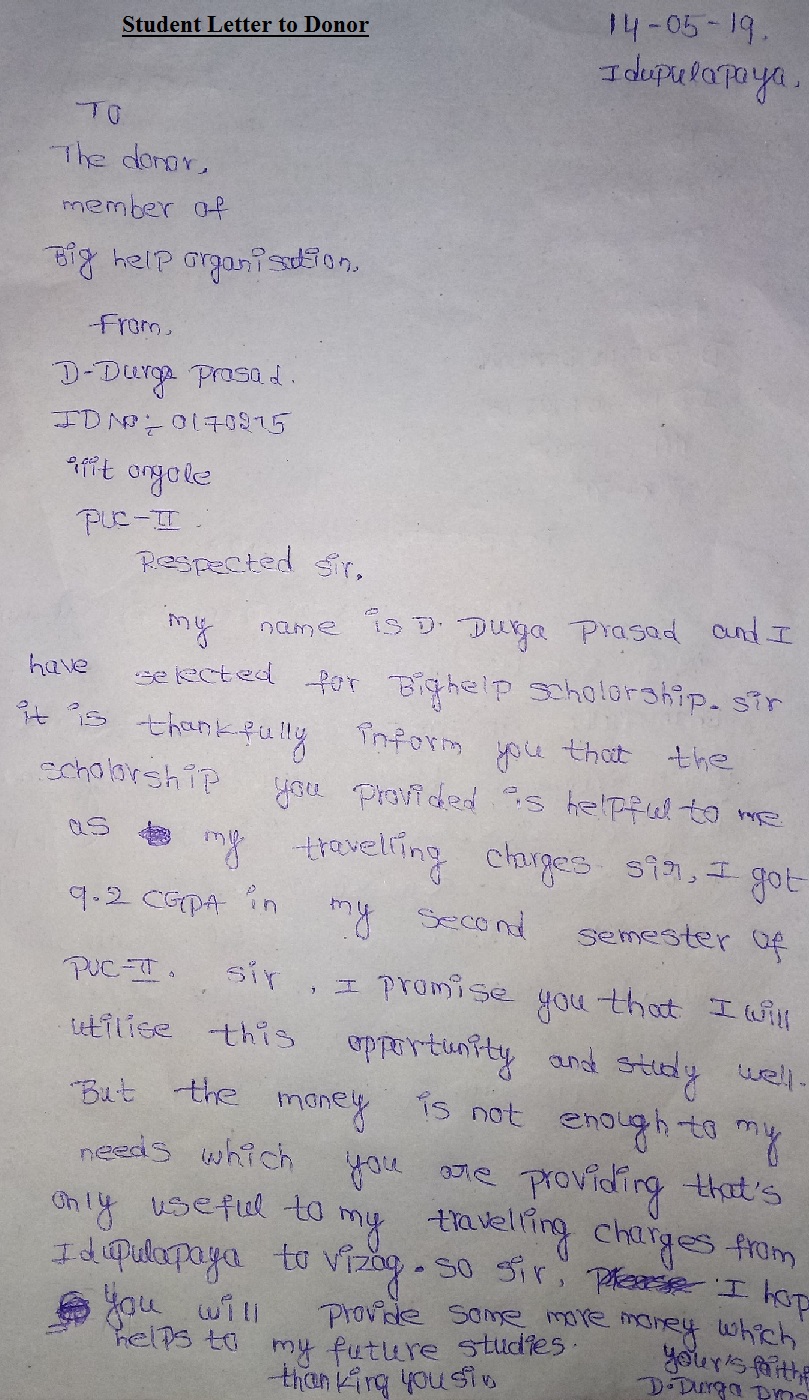 Student Letter to Donor
14-05-19.
Idupulapaya.
TO
The donor,
member of
Big help organisation.
From,
D-Durga prasad.
ID No:- 0170215
iiit ongole
PUC-II.
Respected sir,
my name is D. Durga prasad and I
have selected for Bighelp scholorship. sir
it is thankfully inform you that the
scholorship you provided is helpful to me
as my travelling charges. sir, I got
9.2 CGPA in my second semester of
PUC-II. sir, I promise you that I will
utilise this opportunity and study well.
But the money is not enough to my
needs which you are providing that's
only useful to my travelling charges from
Idupulapaya to vizag. so sir, please I hop
you will provide some more money which
helps to my future studies.
your's faithf
thanking you sir,
D. Durga